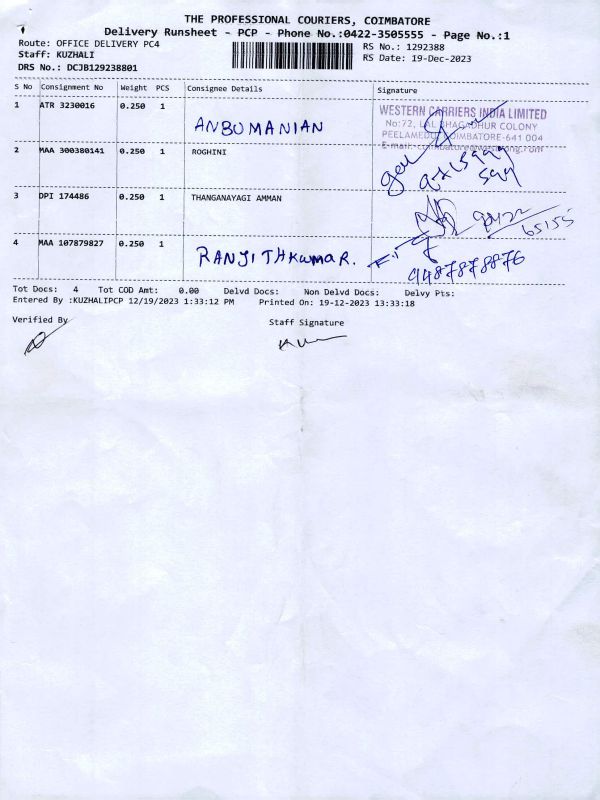 THE PROFESSIONAL COURIERS, COIMBATORE
Delivery Runsheet - PCP - Phone No.:0422-3505555 - Page No.:1
Route: OFFICE DELIVERY PC4
RS No.: 1292388
Staff: KUZHALI
RS Date: 19-Dec-2023
DRS No.: DCJB129238801
S No Consignment No Weight PCS Consignee Details Signature
1 ATR 3230016 0.250 1 ANBUMANIAN
WESTERN CARRIERS INDIA LIMITED
No:72, LAL BHAGADHUR COLONY
PEELAMEDU COIMBATORE-641 004
E-mail:
2 MAA 300380141 0.250 1 ROGHINI
3 DPI 174486 0.250 1 THANGANAYAGI AMMAN
65155
4 MAA 107879827 0.250 1 RANJITHKUMAR.
9487878876
Tot Docs: 4 Tot COD Amt: 0.00 Delvd Docs: Non Delvd Docs: Delvy Pts:
Entered By :KUZHALIPCP 12/19/2023 1:33:12 PM Printed On: 19-12-2023 13:33:18
Verified By Staff Signature